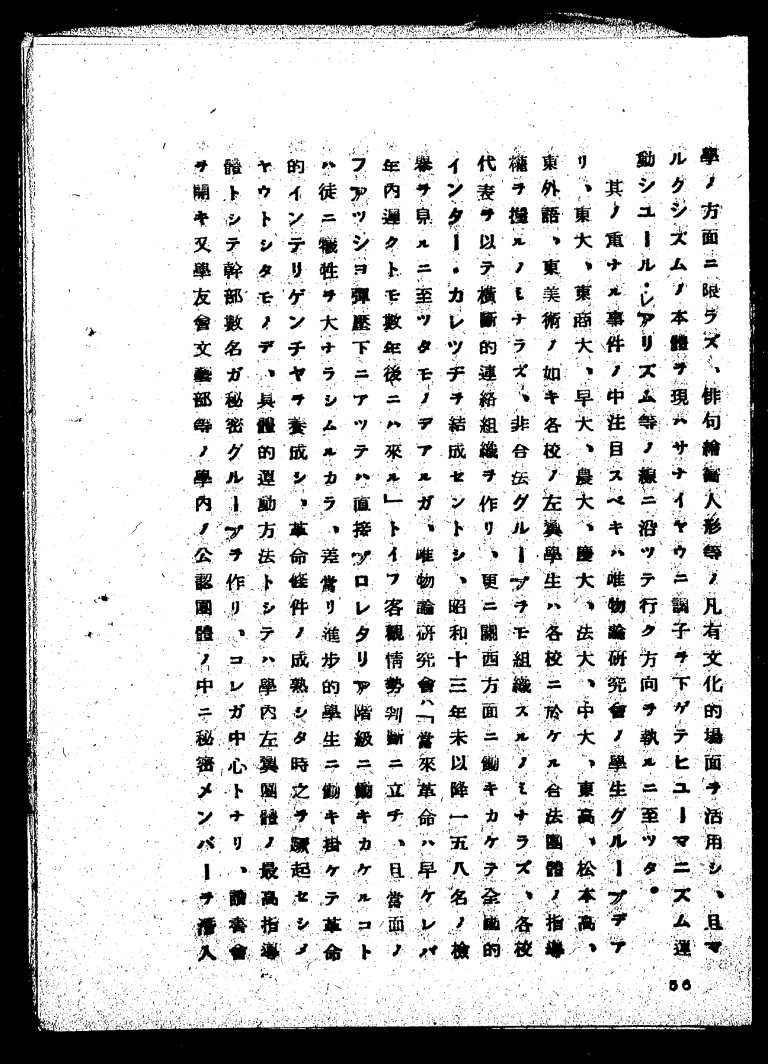 學ノ方面ニ限ラズ、俳句繪畫人形等ノ凡有文化的場面ヲ活用シ、且マ
ルクシズムノ本體ヲ現ハサナイヤウニ調子ヲ下ゲテヒユーマニズム運
動シユール・レアリズム等ノ線ニ沿ツテ行ク方向ヲ執ルニ至ツタ。
其ノ重ナル事件ノ中注目スベキハ唯物論研究會ノ學生グループデア
リ、東大、東商大、早大、農大、慶大、法大、中大、東高、松本高、
東外語、東美術ノ如キ各校ノ左翼學生ハ各校ニ於ケル合法團體ノ指導
權ヲ握ルノミナラズ、非合法グループヲモ組織スルノミナラズ、各校
代表ヲ以テ橫斷的連絡組織ヲ作リ、更ニ關西方面ニ働キカケテ全國的
インター・カレツヂヲ結成セントシ、昭和十三年末以降一五八名ノ檢
擧ヲ見ルニ至ツタモノデアルガ、唯物論研究會ハ「當來革命ハ早ケレバ
年內遲クトモ數年後ニハ來ル」トイフ客觀情勢判斷ニ立チ、且當面ノ
フアツシヨ彈壓下ニアツテハ直接プロレタリア階級ニ働キカケルコト
ハ徒ニ犧牲ヲ大ナラシムルカラ、差當リ進步的學生ニ働キ掛ケテ革命
的インテリゲンチヤヲ養成シ、革命條件ノ成熟シタ時之ヲ蹶起セシメ
ヤウトシタモノデ、具體的運動方法トシテハ學內左翼團體ノ最高指導
體トシテ幹部數名ガ秘密グループヲ作リ、コレガ中心トナリ、讀書會
ヲ開キ又學友會文藝部等ノ學內ノ公認團體ノ中ニ秘密メンバーヲ潛入
56